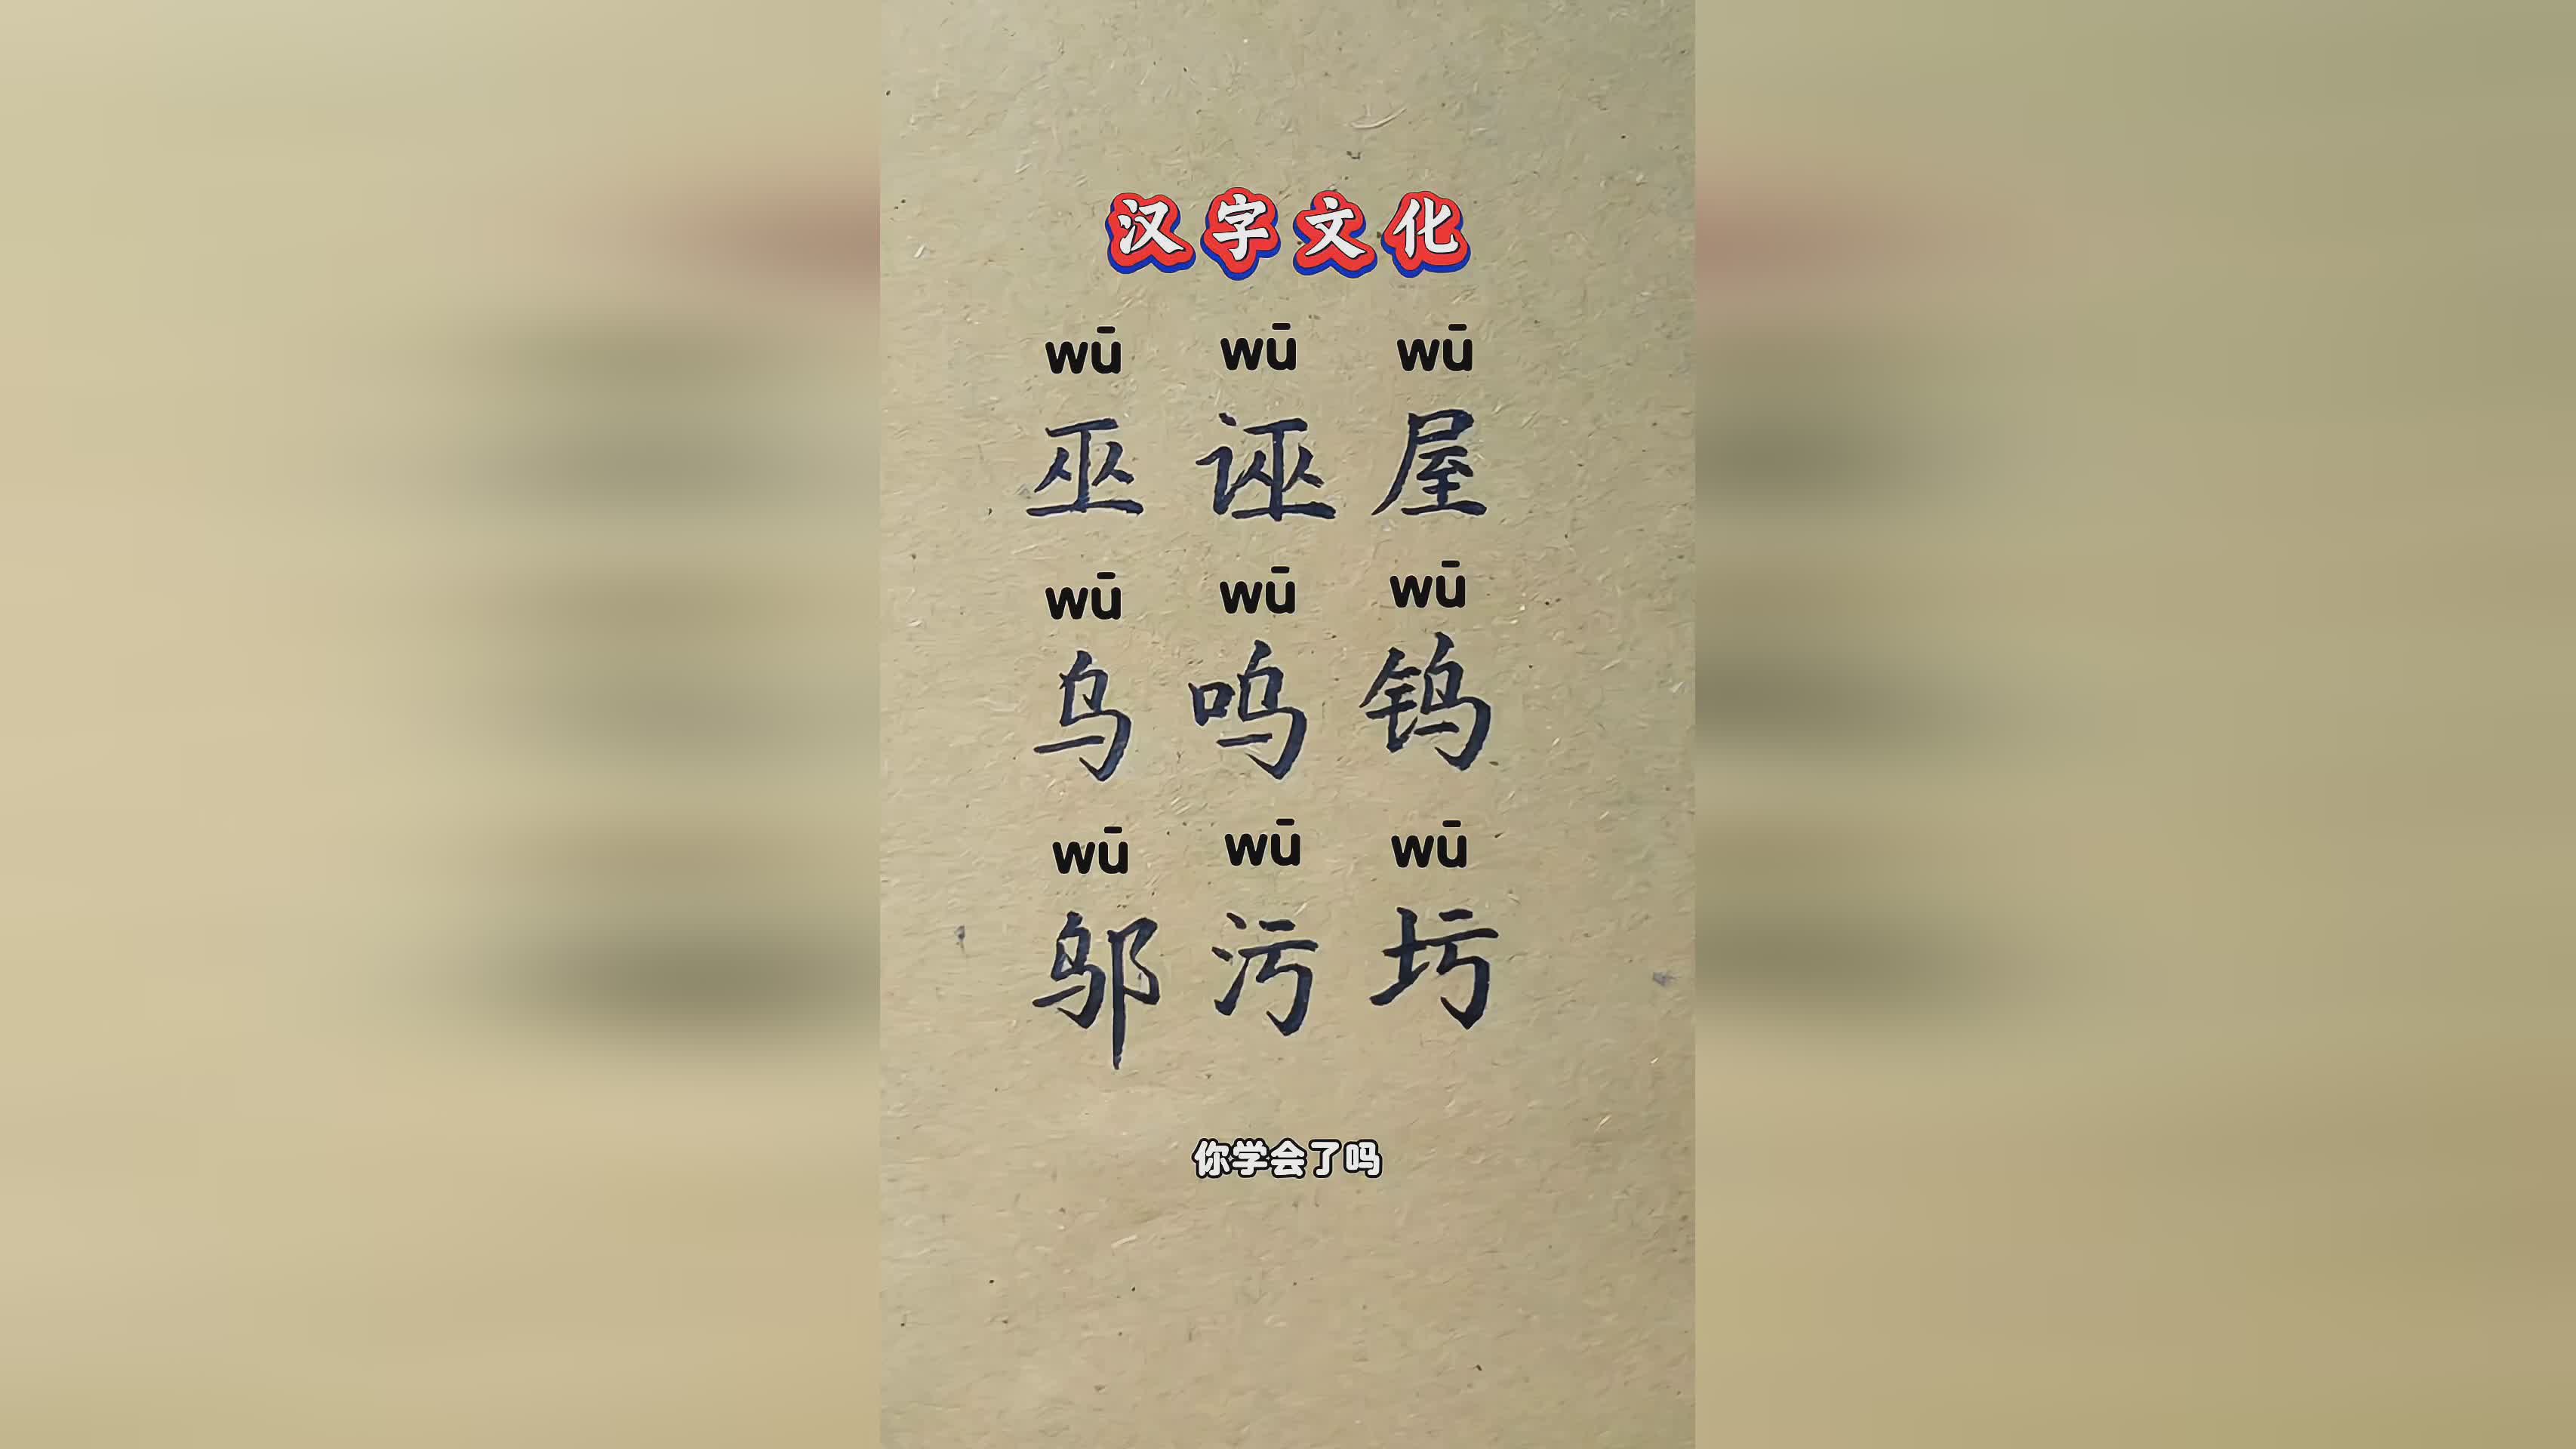 汉字文化
wū wū wū
巫 诬 屋
wū wū wū
乌 呜 钨
wū wū wū
邬 污 圬
你学会了吗